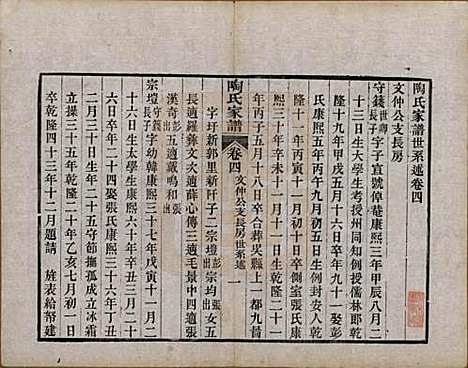 陶氏家譜世系述卷四
文仲公支長房
守錢世卿長子字子宣號倬菴康熙三年甲辰八月二
十三日生大學生考授州同知例授儒林郎乾
隆十九年甲戌五月十六日卒年九十一娶彭
氏康熙五年丙午九月初五日生例封安人乾
隆十一年丙寅十一月初十日卒側室張氏康
熙三十年辛未十二月十一日生乾隆二十一
年丙子五月十八日卒合葬吳縣上一都九啚
字圩新郭里新阡子二宗壇彭出宗塏張出女五
長適顧志適薛心傳適毛景中四適張
漢奇彭出五適戴鳴和張出
宗壇守錢長子字幼韓康熙三十七年戊寅十一月二
十六日生太學生康熙六十年辛丑三月二十
六日卒年二十四娶張氏康熙三十六年丁丑
二月三十日生年二十五守節撫孤成立冰霜
立操三十四年乾隆二十年乙亥七月初一日
卒乾隆四十三年十二月題請 旌表給帑建
陶氏家譜 卷四 文仲公支長房世系述 一